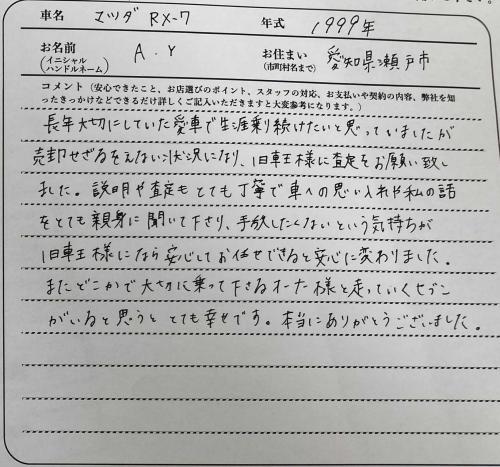 車名 マツダ RX-7 年式 1999年
お名前 (イニシャル ハンドルネーム) A.Y お住まい (市町村名まで) 愛知県瀬戸市
コメント（安心できたこと、お店選びのポイント、スタッフの対応、お支払いや契約の内容、弊社を知
ったきっかけなどできるだけ詳しくご記入いただきますと大変参考になります。）
長年大切にしていた愛車で生涯乗り続けたいと思っていましたが
売却せざるをえない状況になり、旧車王様に査定をお願い致し
ました。説明や査定もとても丁寧で車への思い入れや私の話
をとても親身に聞いて下さり、手放したくないという気持ちが
旧車王様になら安心してお任せできると安心に変わりました。
またどこかで大切に乗って下さるオーナー様と走っていくセブン
がいると思うととても幸せです。本当にありがとうございました。